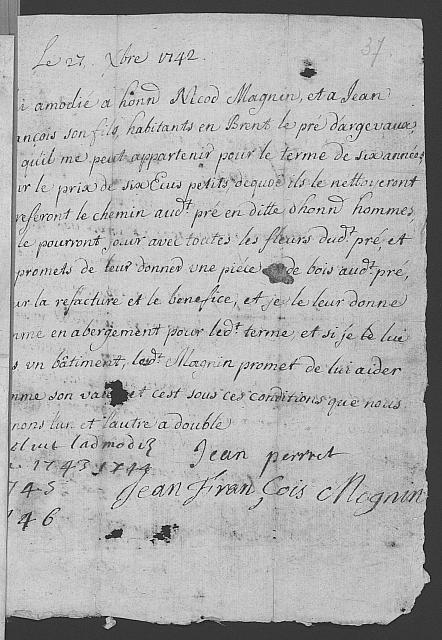 37
Le 27. Xbre 1742.
i amodié a honn Nicod Magnin, et a Jean
ançois son fils, habitants en Brent le pré dargevaux,
quil me peut appartenir pour le terme de six années,
ur le prix de six Ecus petits dequoé ils le nettoyeront
referont le chemin audt. pré en ditte d'honn hommes,
le pourront jouir avec toutes les fleurs dudt. pré, et
promets de leur donner une piéce de bois audt. pré,
ur la refacture et le benefice, et je le leur donne
mme en abergement pour ledt. terme, et si je le lui
s un bâtiment, ledt. Magnin promet de lui aider
mme son et cest sous ces conditions que nous
nons lun et lautre a double
ladmodié
1743 1744 Jean perret
745 Jean François Magnin
46